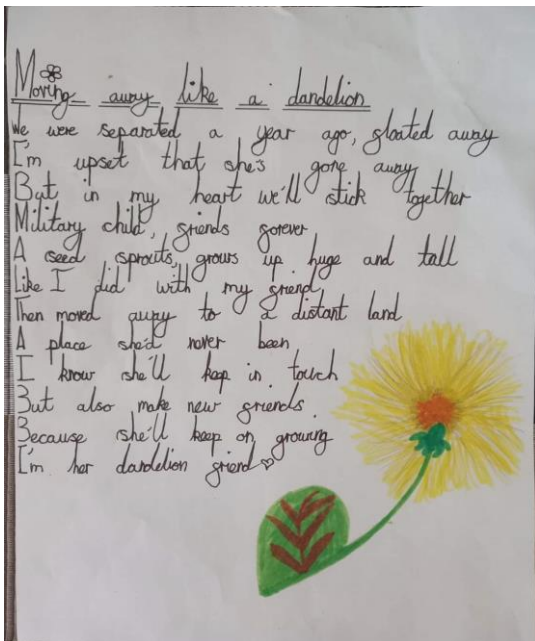 Moving away like a dandelion
We were separated a year ago, floated away
I'm upset that she's gone away
But in my heart we'll stick together
Military child, friends forever
A seed sprouts, grows up huge and tall
Like I did with my friend
Then moved away to a distant land
A place she'd never been
I know she'll keep in touch
But also make new friends.
Because she'll keep on growing
I'm her dandelion friend